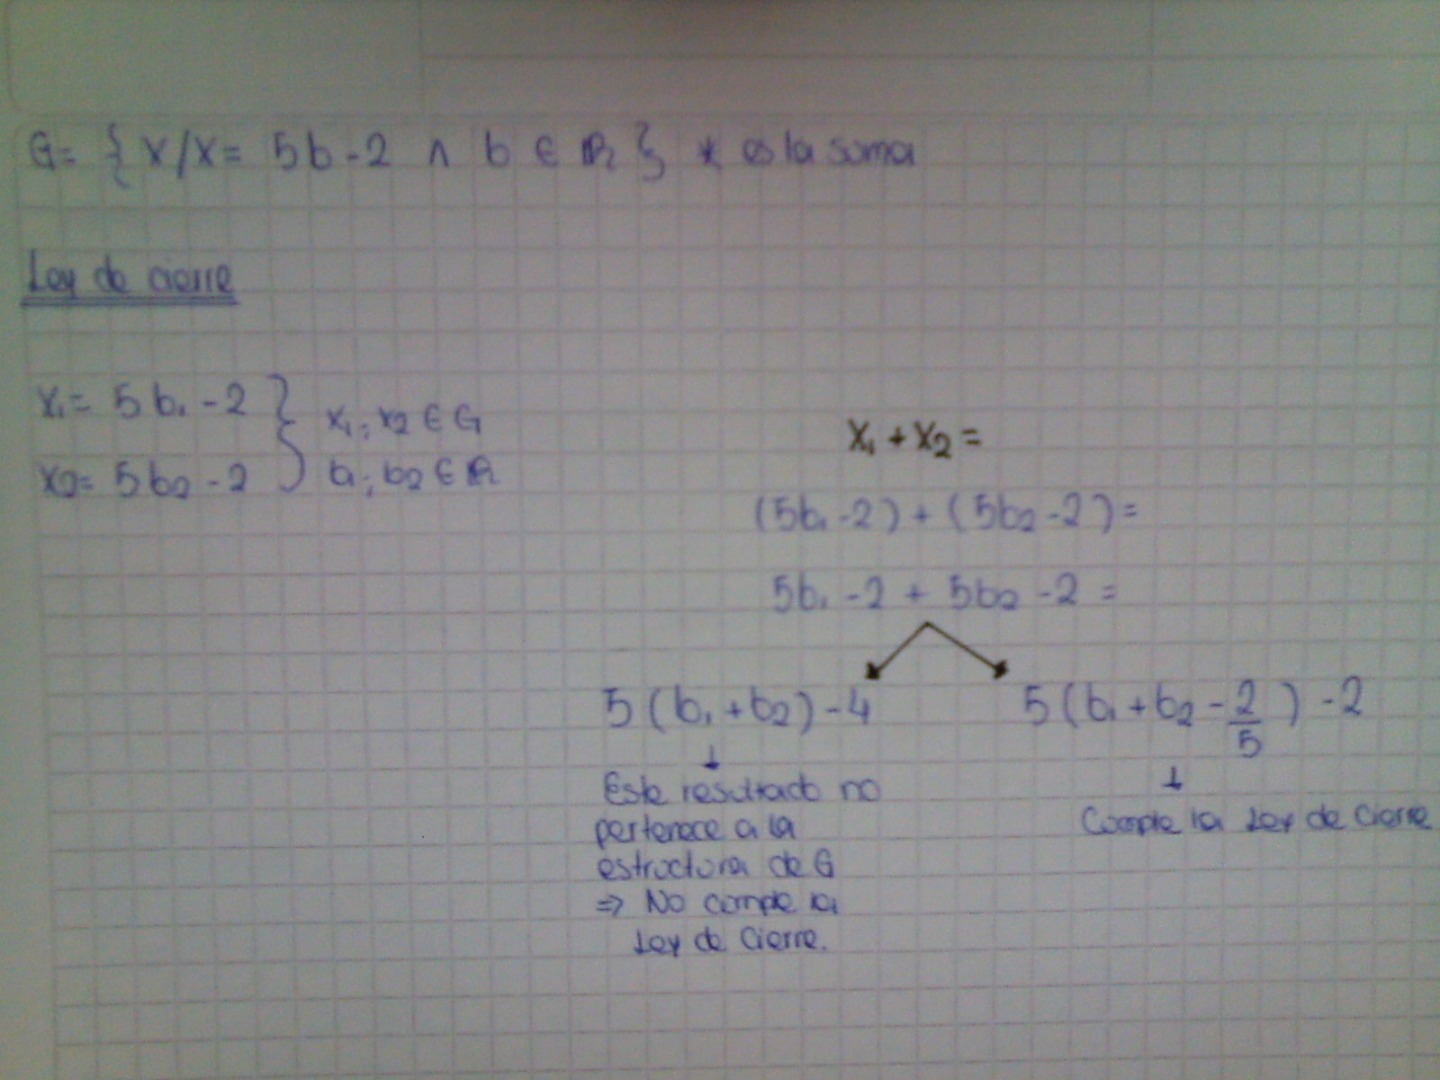 G= { X/X= 5b-2 ∧ b ∈ ℝ } * es la suma
Ley de cierre
X₁= 5b₁-2 } X₁; X₂ ∈ G
X₂= 5b₂-2 } b₁; b₂ ∈ ℝ
X₁ + X₂ =
(5b₁-2) + (5b₂-2) =
5b₁-2 + 5b₂-2 =
5(b₁+b₂)-4
↓
Este resultado no
pertenece a la
estructura de G
⇒ No cumple la
Ley de Cierre.
5(b₁+b₂-2/5)-2
↓
Cumple la Ley de Cierre